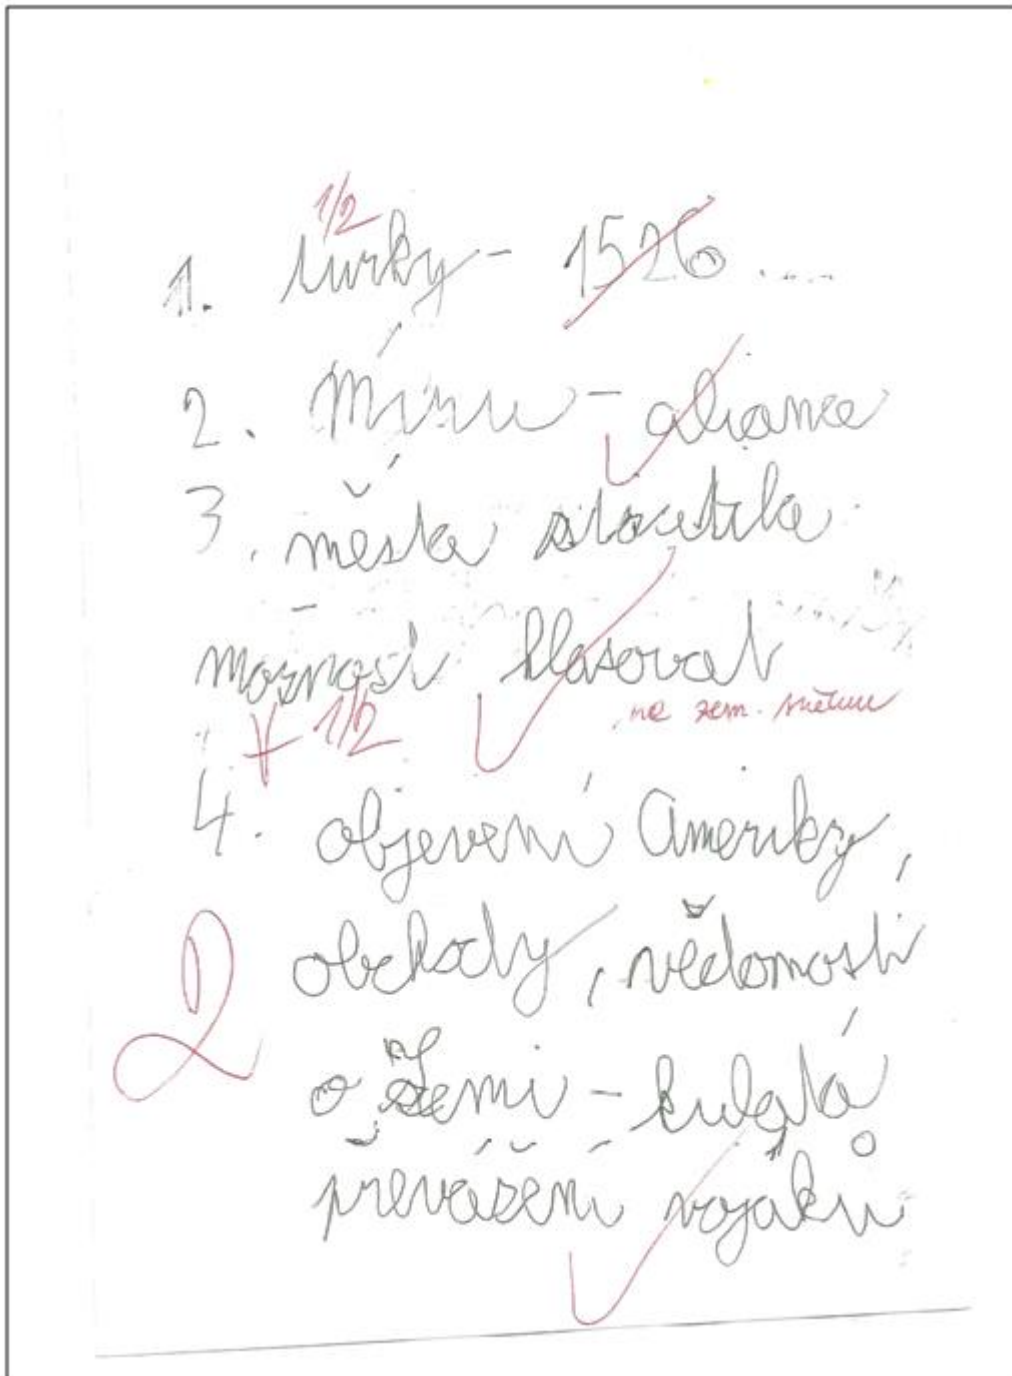 1/2
1. turky - 1526 ....
2. Míru - aliance
3. města ztratila
možnost hlasovat
na zem. sněmu
+ 1/2
4. objevení Ameriky,
2
obchody, vědomosti
o Zemi - kulatá
převážení vojáků